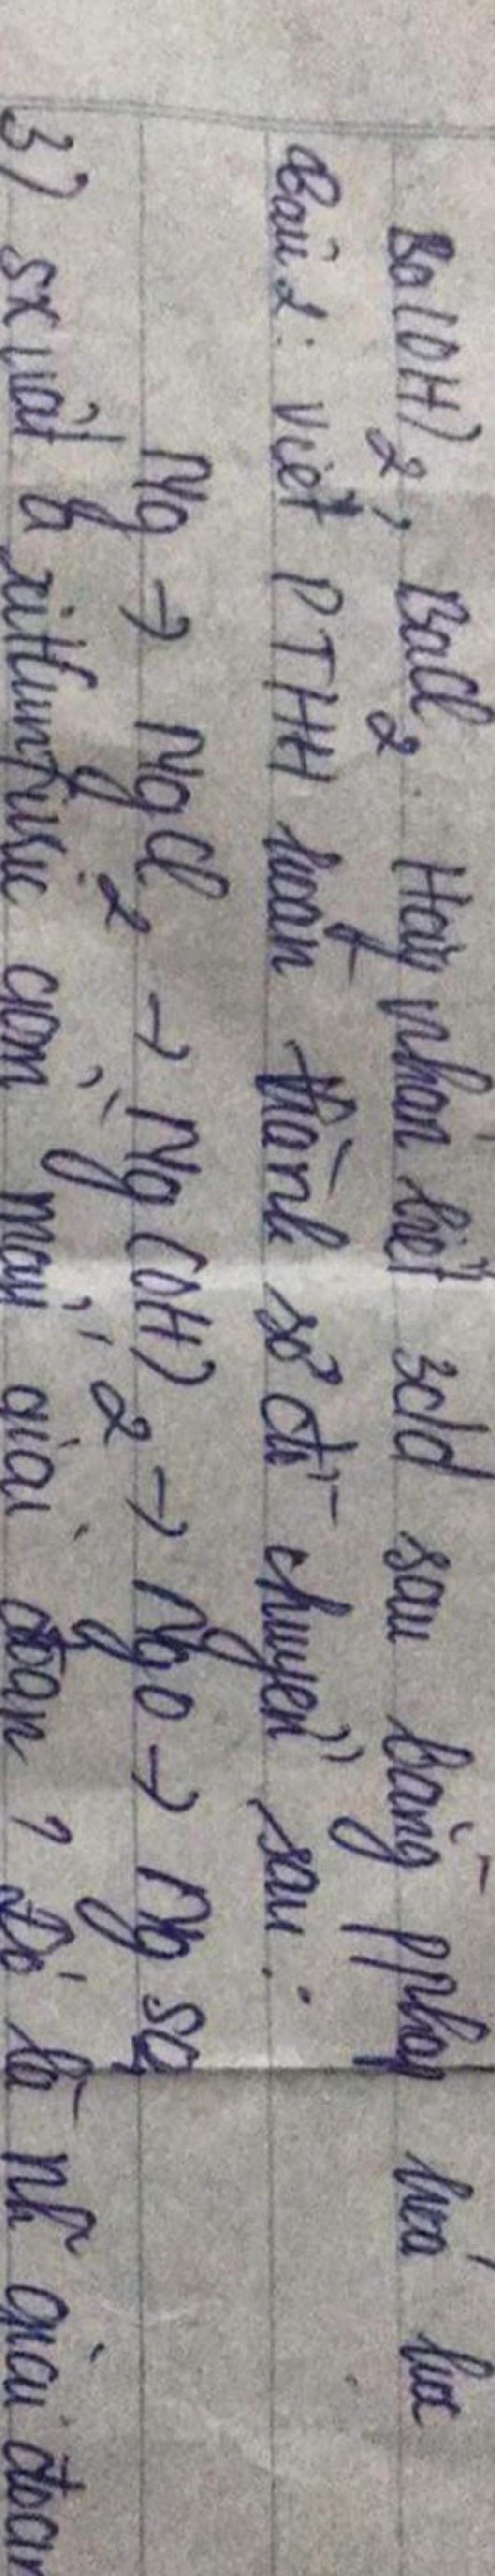 Ba(OH)2, BaCl2. Hãy nhận biết 3dd sau bằng ppháp hoá học
Bài 2: Viết PTHH hoàn thành sơ đồ chuyển sau:
Mg → MgCl2 → Mg(OH)2 → MgO → MgSO4
3) sxuất axitsunfuric gồm mấy giai đoạn? Đó là nh giai đoạn